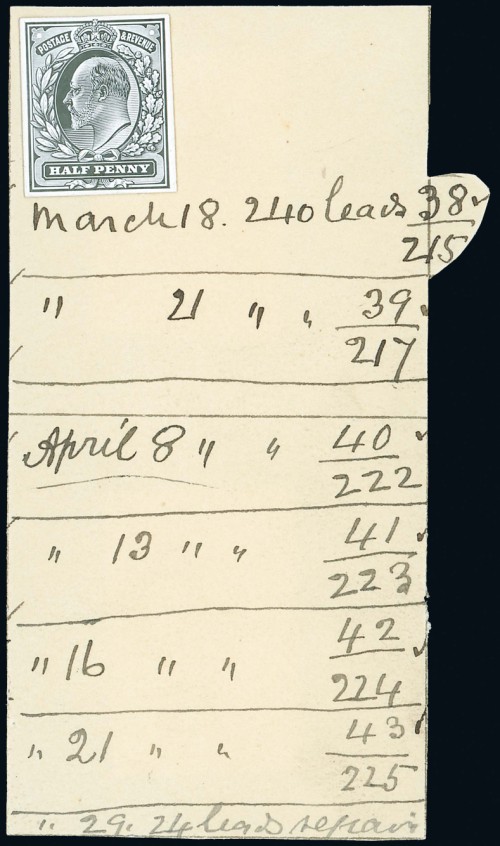 POSTAGE & REVENUE
HALF PENNY
March 18. 240 leads 38
215
" 21 " " 39
217
April 8 " " 40
222
" 13 " " 41
223
" 16 " " 42
224
" 21 " " 43
225
" 29. 24 leads repair